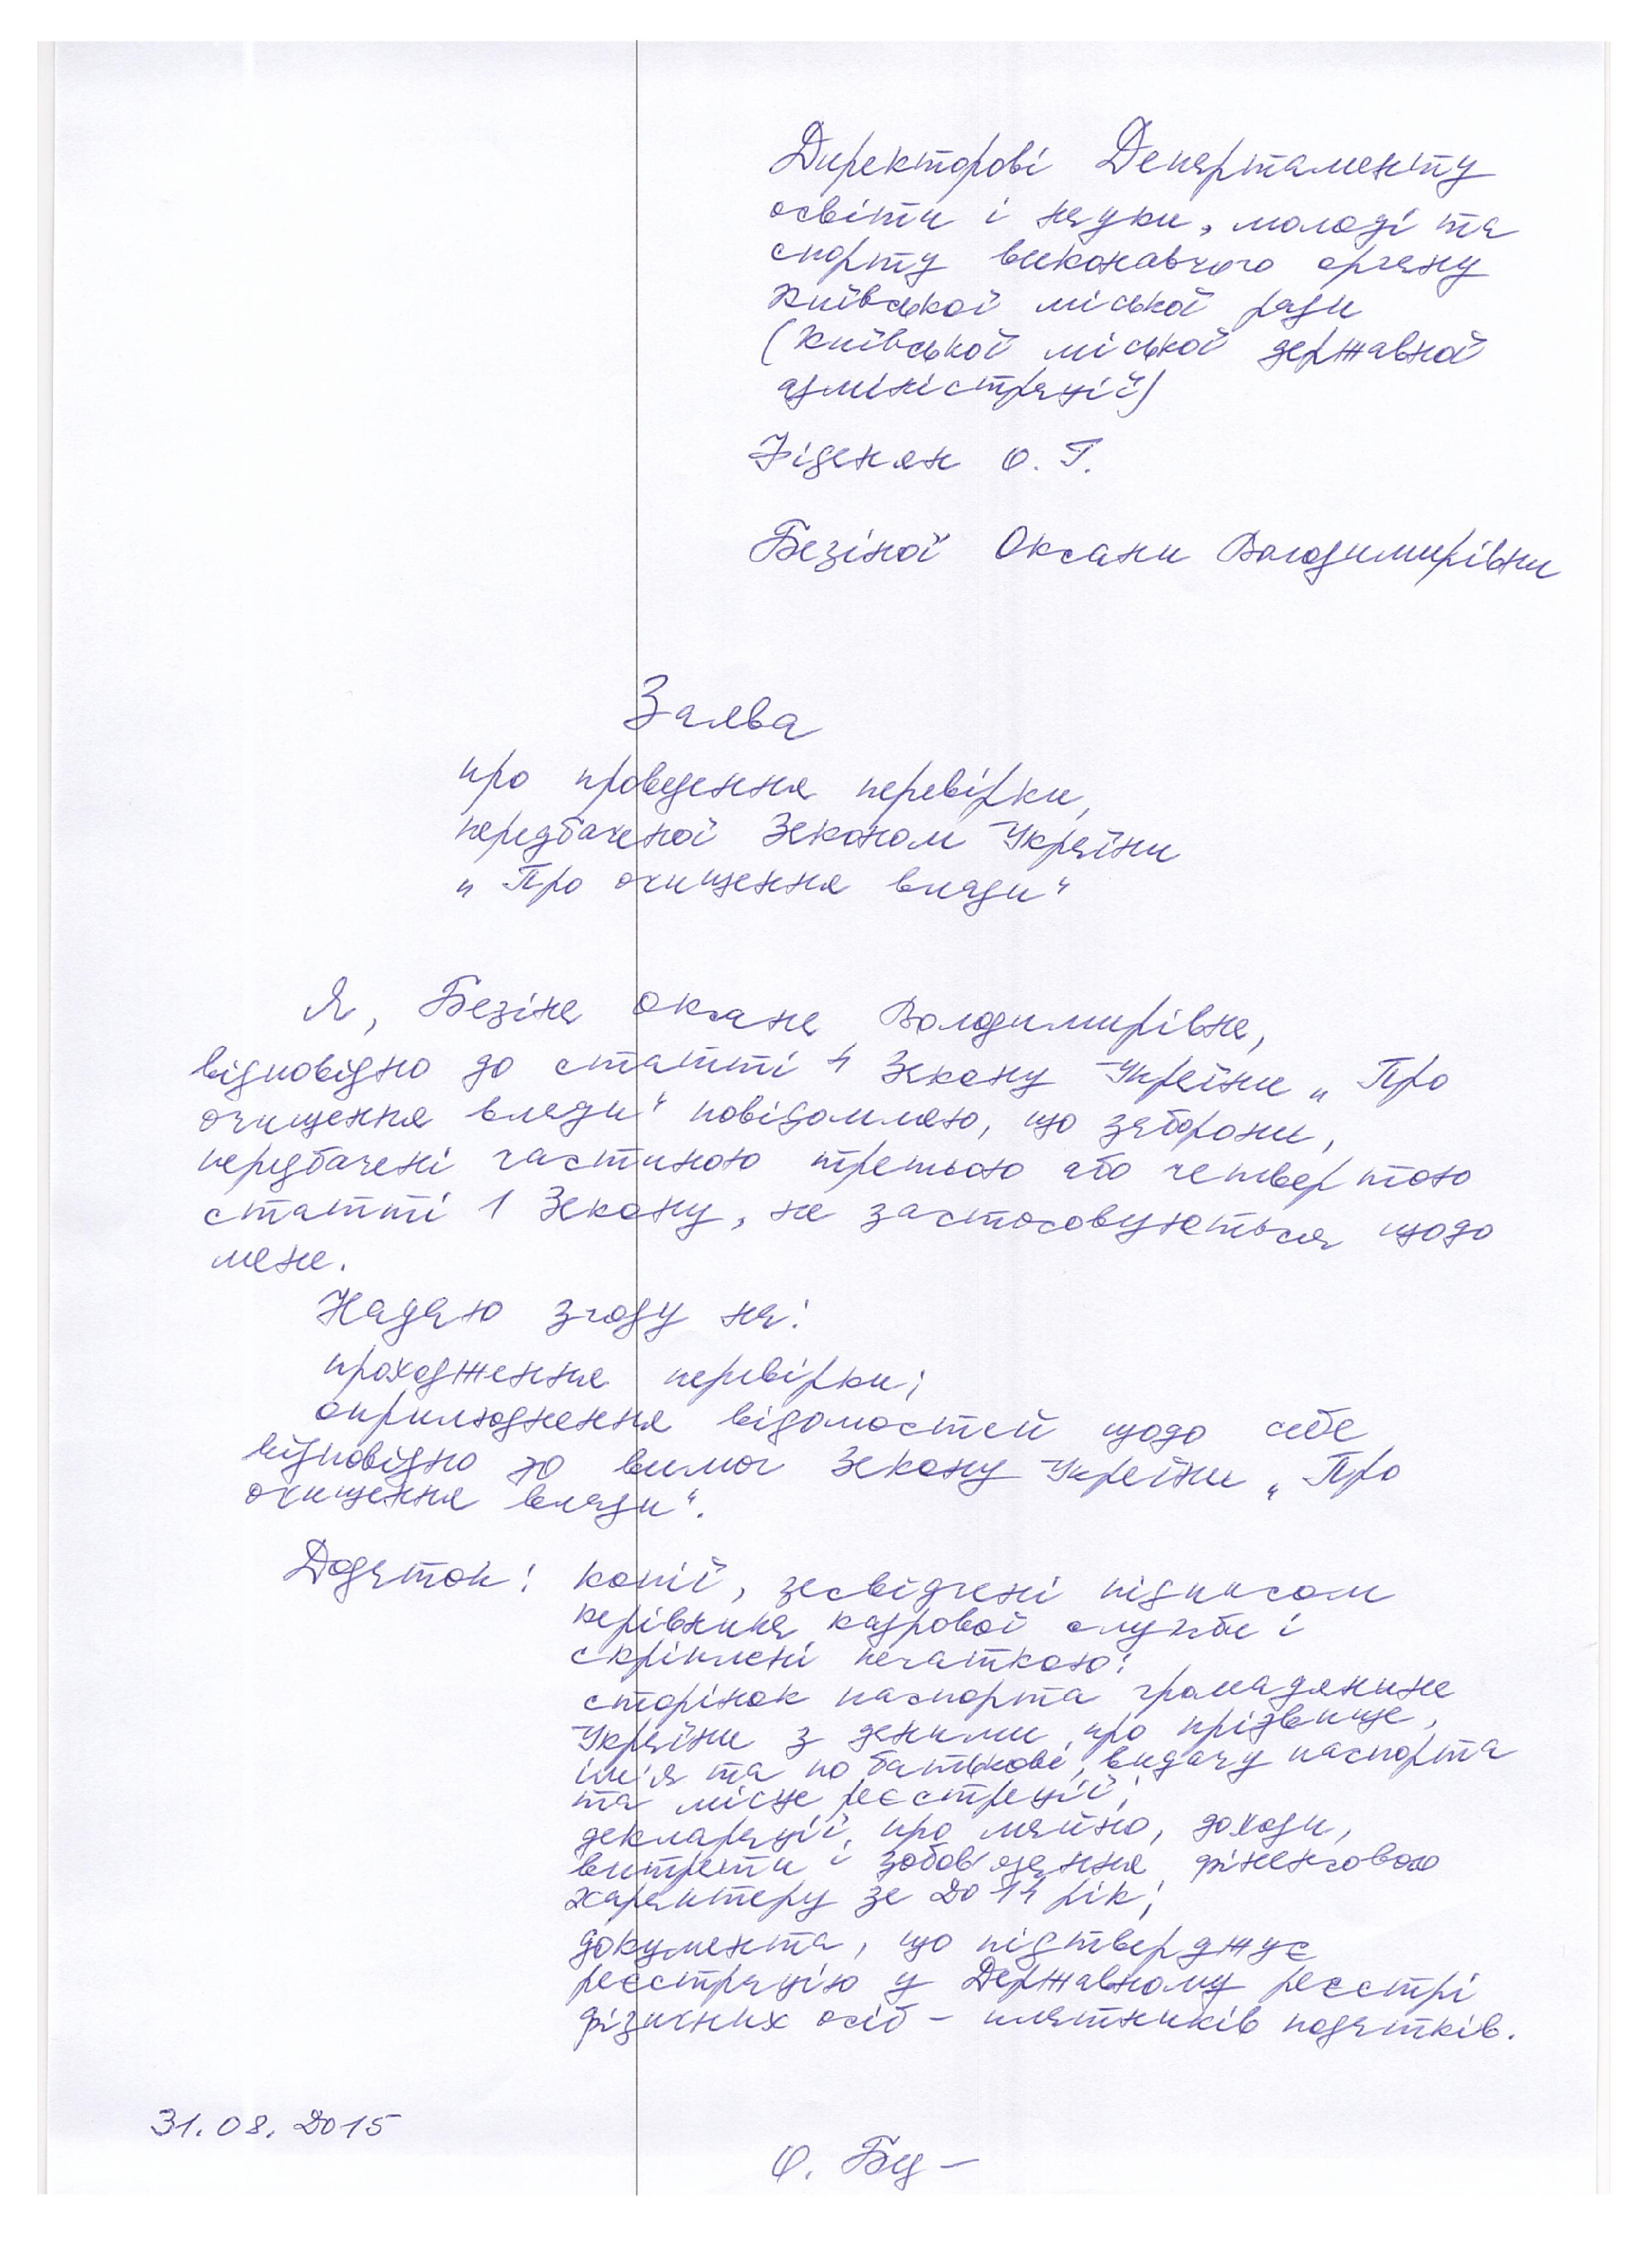 Директорові Департаменту
освіти і науки, молоді та
спорту виконавчого органу
Київської міської ради
(Київської міської державної
адміністрації)
Фіданян О. Г.
Безіної Оксани Володимирівни
Заява
про проведення перевірки,
передбаченої Законом України
„Про очищення влади“
Я, Безіна Оксана Володимирівна,
відповідно до статті 4 Закону України „Про
очищення влади“ повідомляю, що заборони,
передбачені частиною третьою або четвертою
статті 1 Закону, не застосовуються щодо
мене.
Надаю згоду на:
проходження перевірки;
оприлюднення відомостей щодо себе
відповідно до вимог Закону України „Про
очищення влади“.
Додаток: копії, засвідчені підписом
керівника кадрової служби і
скріплені печаткою:
сторінок паспорта громадянина
України з даними про прізвище,
ім'я та по батькові, видачу паспорта
та місце реєстрації;
декларації про майно, доходи,
витрати і зобов'язання фінансового
характеру за 2014 рік;
документа, що підтверджує
реєстрацію у Державному реєстрі
фізичних осіб – платників податків.
31.08.2015